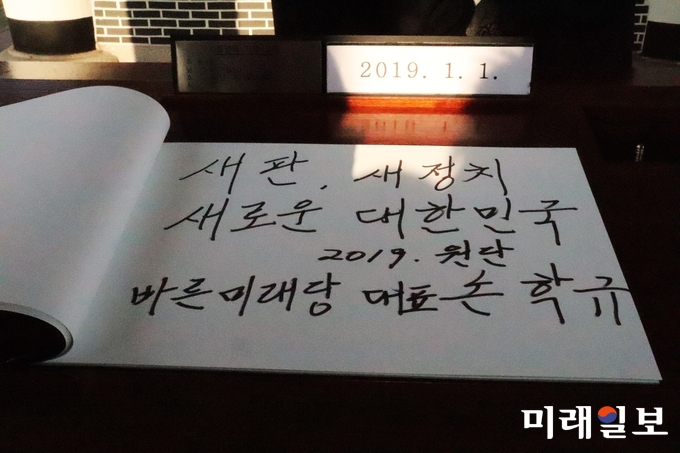 2019. 1. 1.
새판, 새정치
새로운 대한민국
2019. 원단
바른미래당 대표 손학규
미래일보